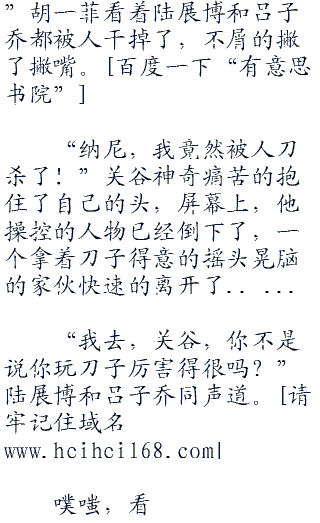 ”胡一菲看着陆展博和吕子
乔都被人干掉了，不屑的撇
了撇嘴。[百度一下“有意思
书院”]
“纳尼，我竟然被人刀
杀了！”关谷神奇痛苦的抱
住了自己的头，屏幕上，他
操控的人物已经倒下了，一
个拿着刀子得意的摇头晃脑
的家伙快速的离开了．．．．．
“我去，关谷，你不是
说你玩刀子厉害得很吗？”
陆展博和吕子乔同声道。[请
牢记住域名
www.hcihci168.com|
噗嗤，看